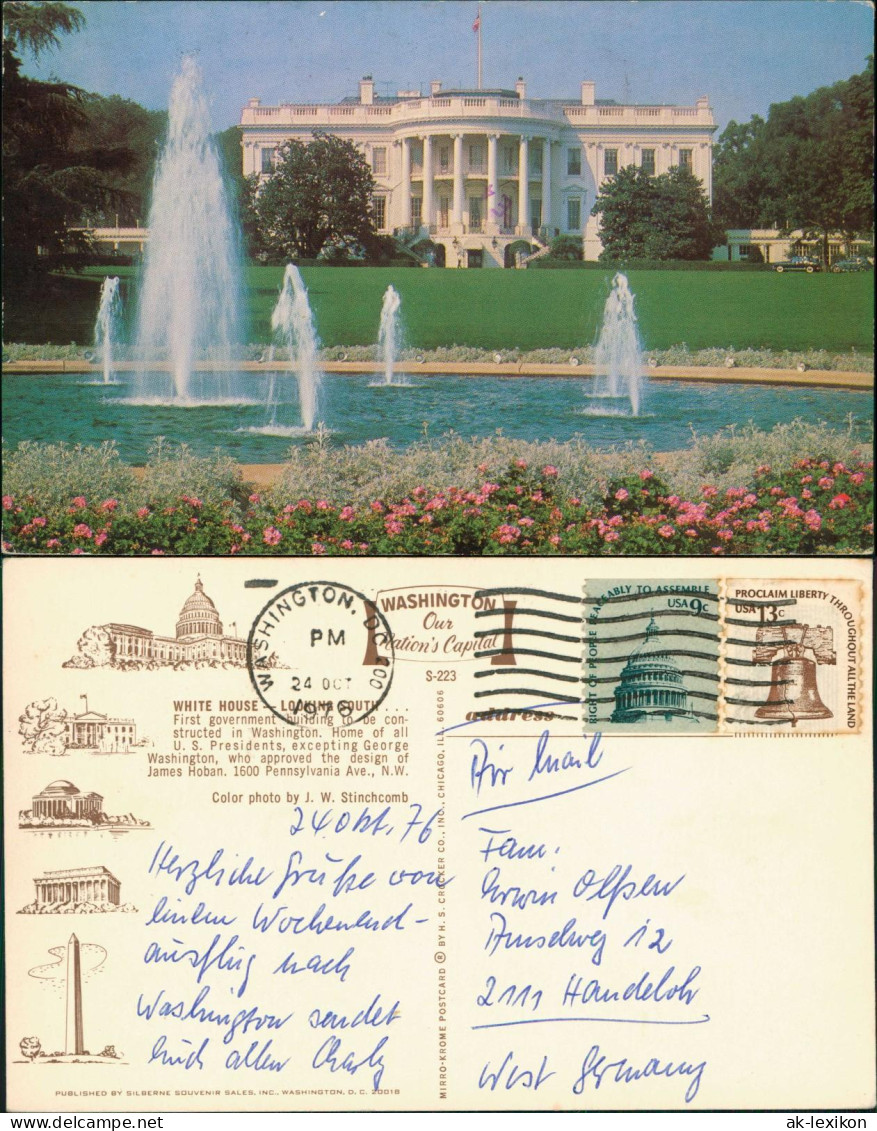 WASHINGTON, DC 200
PM
24 OCT
1976
WASHINGTON
Our
Nation's Capital
S-223
address
RIGHT OF PEOPLE PEACEABLY TO ASSEMBLE
USA 9c
PROCLAIM LIBERTY THROUGHOUT ALL THE LAND
USA 13c
WHITE HOUSE - LOOKING SOUTH . . .
First government building to be con-
structed in Washington. Home of all
U. S. Presidents, excepting George
Washington, who approved the design of
James Hoban. 1600 Pennsylvania Ave., N.W.
Color photo by J. W. Stinchcomb
24 Okt. 76
Herzliche Grüße von
einem Wochenend-
ausflug nach
Washington sendet
Euch allen Charly
PUBLISHED BY SILBERNE SOUVENIR SALES, INC., WASHINGTON, D. C. 20018
MIRRO-KROME POSTCARD ® BY H. S. CROCKER CO., INC., CHICAGO, ILL. 60606
Air Mail
Fam.
Erwin Olßen
Amselweg 12
2111 Handeloh
West Germany
ak-lexikon